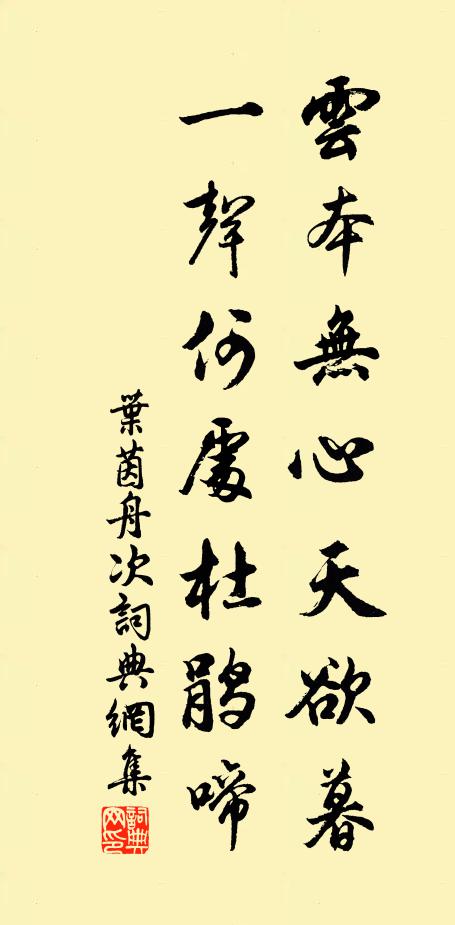 雲本無心天欲暮
一聲何處杜鵑啼
葉茵舟次詞典網集
詞典
网印